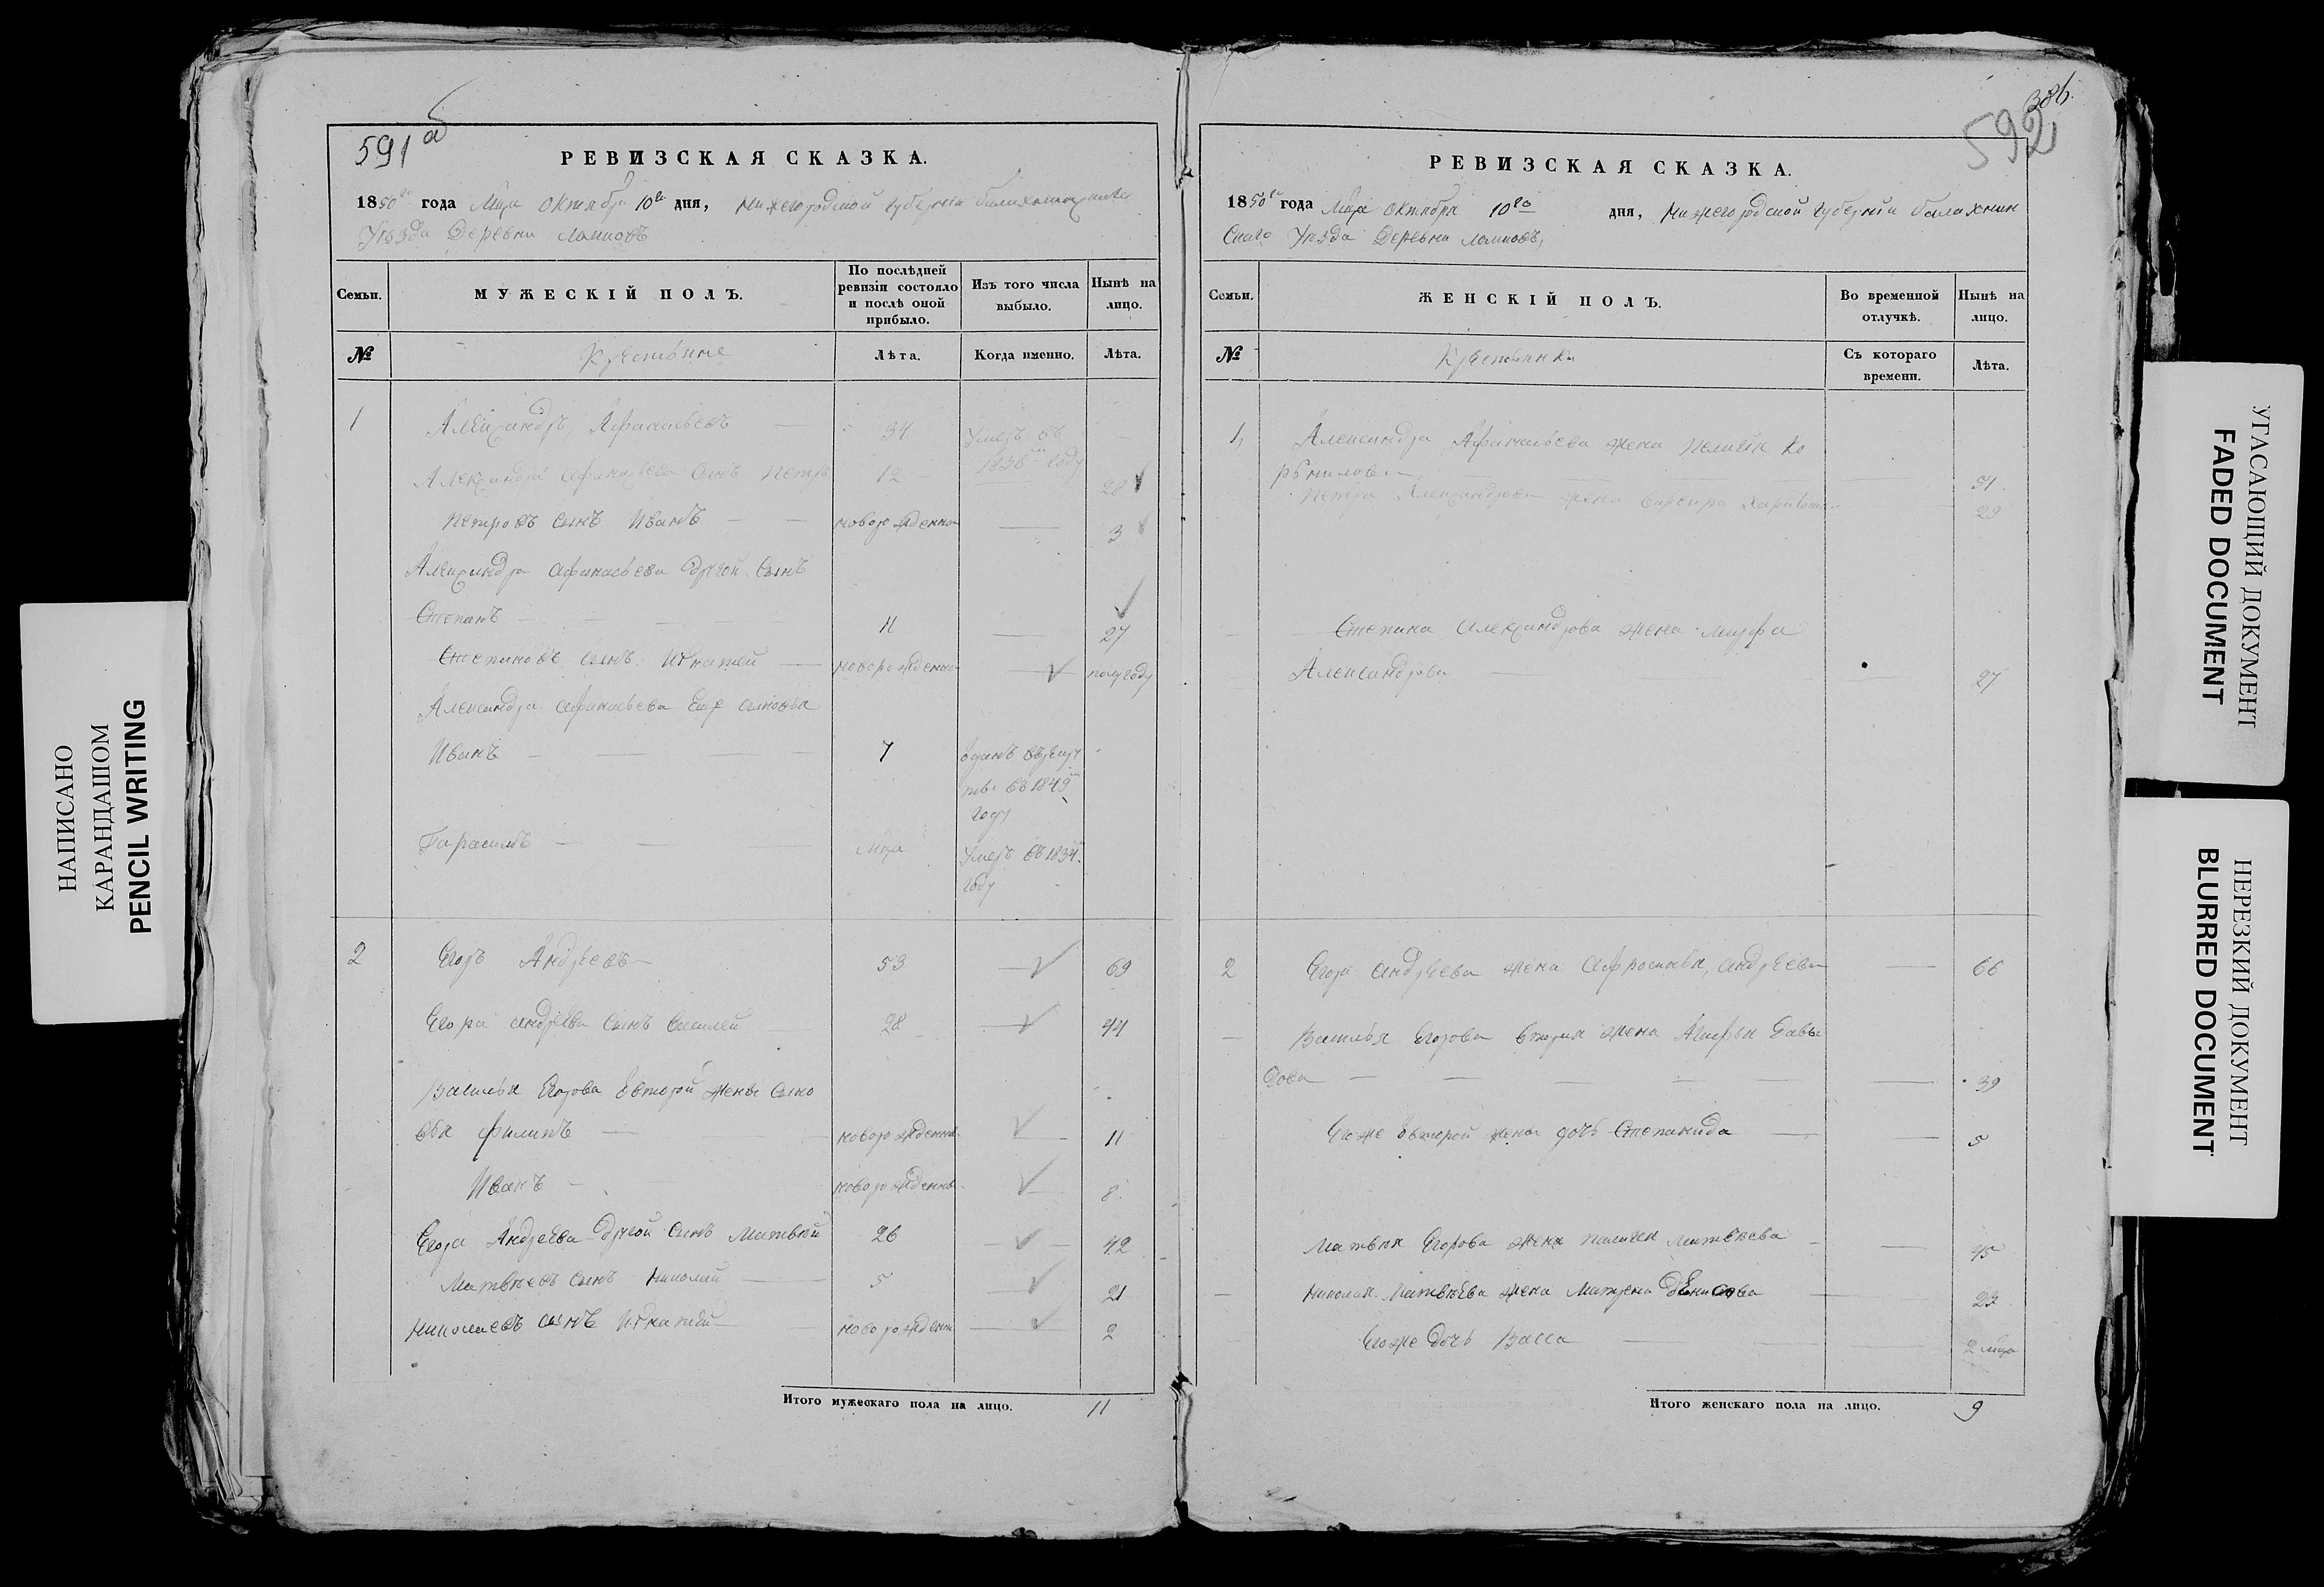 НАПИСАНО
КАРАНДАШОМ
PENCIL WRITING
591 об
РЕВИЗСКАЯ СКАЗКА.
1850го года Мца Октября 10го дня, Нижегородской губерніи балахнинскаго
Уѣзда Деревни
Семьи.
МУЖЕСКІЙ ПОЛЪ.
По послѣдней ревизіи состояло и послѣ оной прибыло.
Изъ того числа выбыло.
Нынѣ на лицо.
№
Крестьяне
Лѣта.
Когда именно.
Лѣта.
1 Александръ Афанасьевъ 34 Умеръ въ
1836м году
Александра Афанасьева сынъ Петръ 12 28
Петровъ сынъ Иванъ новорожденной 3
Александра Афанасьева другой сынъ
Степанъ 11 27
Степановъ сынъ Игнатей новорожденной полугоду
Александра Афанасьева еще сыновья
Иванъ 7 отданъ врекрут
въ 1849м
году
Гарасимъ Умеръ въ 1834м
году
2 Егоръ Андреевъ 53 69
Егора андреева сынъ Василей 28 44
Василья Егорова второй жены сыно
вья филипъ новорожденной 11
Иванъ новорожденной 8
Егора Андреева другой сынъ Матвѣй 26 42
Матвѣевъ сынъ Николай 5 21
Николаевъ сынъ Игнатей новорожденной 2
Итого мужескаго пола на лицо. 11
386.
592
РЕВИЗСКАЯ СКАЗКА.
1850го года Мца Октября 10го дня, Нижегородской Губерніи балахнин
скаго Уѣзда Деревни
Семьи.
ЖЕНСКІЙ ПОЛЪ.
Во временной отлучкѣ.
Нынѣ на лицо.
№
Крестьянки
Съ котораго времени.
Лѣта.
1, Александра Афанасьева жена Пелагѣя Ко
рьнилова 51
Петра Александрова жена варвара Харитонова 29
Степана Александрова жена марфа
Александрова 27
2 Егора андреева жена афросинья, андреева 66
Василья Егорова вторая жена Агафья Давы
дова 39
Егоже второй жены дочь Степанида 5
Матвѣя Егорова жена Палагея Матвѣева 45
Николая Матвѣева жена Матрена денисова 23
Егоже дочь Васса 2 мца
Итого женскаго пола на лицо. 9
УГАСАЮЩИЙ ДОКУМЕНТ
FADED DOCUMENT
НЕРЕЗКИЙ ДОКУМЕНТ
BLURRED DOCUMENT